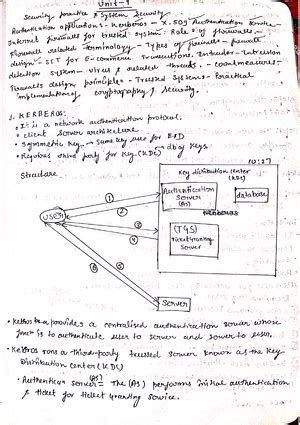 Unit-4
Security practice & System Security -
Authentication applications - Kerberos - X.509 Authentication Service -
Internet firewalls for trusted system: Role of firewalls -
Firewall related terminology - Types of firewalls - firewall
design - SET for E-commerce Transactions, Intruder - Intrusion
detection system - virus & related threats - countmeasures -
Firewalls design principles - Trusted Systems - Practical
implementation of cryptography & Security.
1. KERBEROS:
• It is a network authentication protocol.
• client server architecture
• Symmetric key → same key use for E&D
• Requires third party for key (KDC) → db of keys
10:27
Structure
Key distribution center
(KDC)
Authentication
Server
(AS)
database
Kerberos
(TGS)
Ticket granting
Server
user
1
2
3
4
5
6
Server
provides a centralized authentication server whose
funⁿ is to authenticate user to server and server to user.
• Kerberos runs a third-party trusted server known as the Key
Distribution Center (KDC)
• Authenticatⁿ server (AS) = The (AS) performs initial authentication
& ticket for ticket granting service.